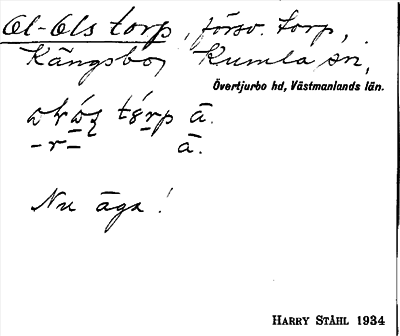 Ol-Ols torp, försv. torp,
Kängsbo, Kumla sn,
Övertjurbo hd, Västmanlands län.
tórp ā.
ā.
Nu äga!
HARRY STÅHL 1934